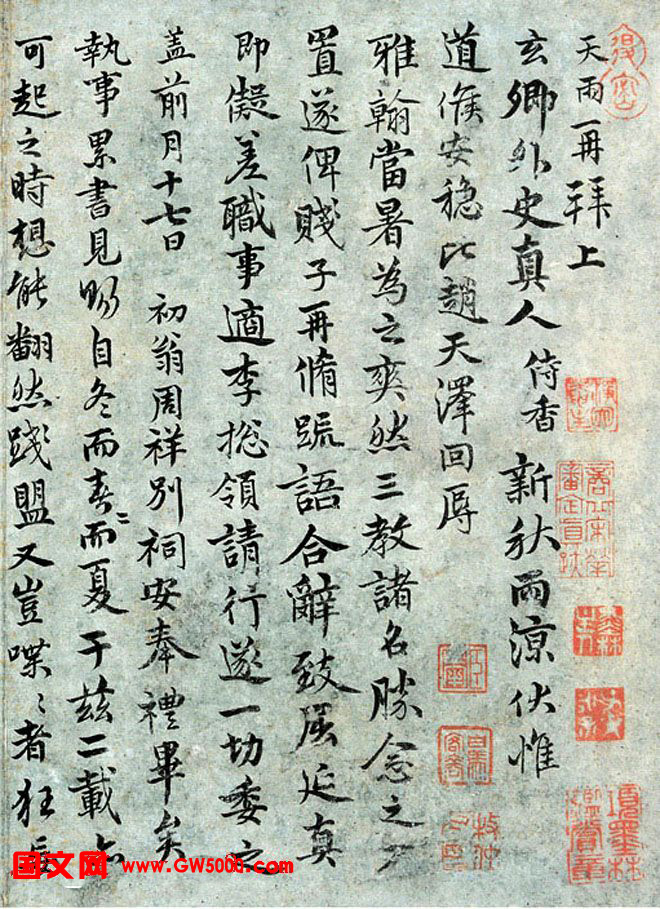 天雨再拜上
玄卿外史真人侍香新秋雨涼伏惟
道候安稳比趙天澤回辱
雅翰當暑為之爽然三教諸名勝念之
置遂俾賤子再脩疏語合辭致屈延真
即儗差職事適李揔領請行遂一切委之
盖前月十七日初翁周祥別祠安奉禮畢矣
執事累書見賜自冬而春〻而夏于兹二載
可起之時想能翻然踐盟又豈喋〻者狂
项墨林
国文网 www.GW5000.com